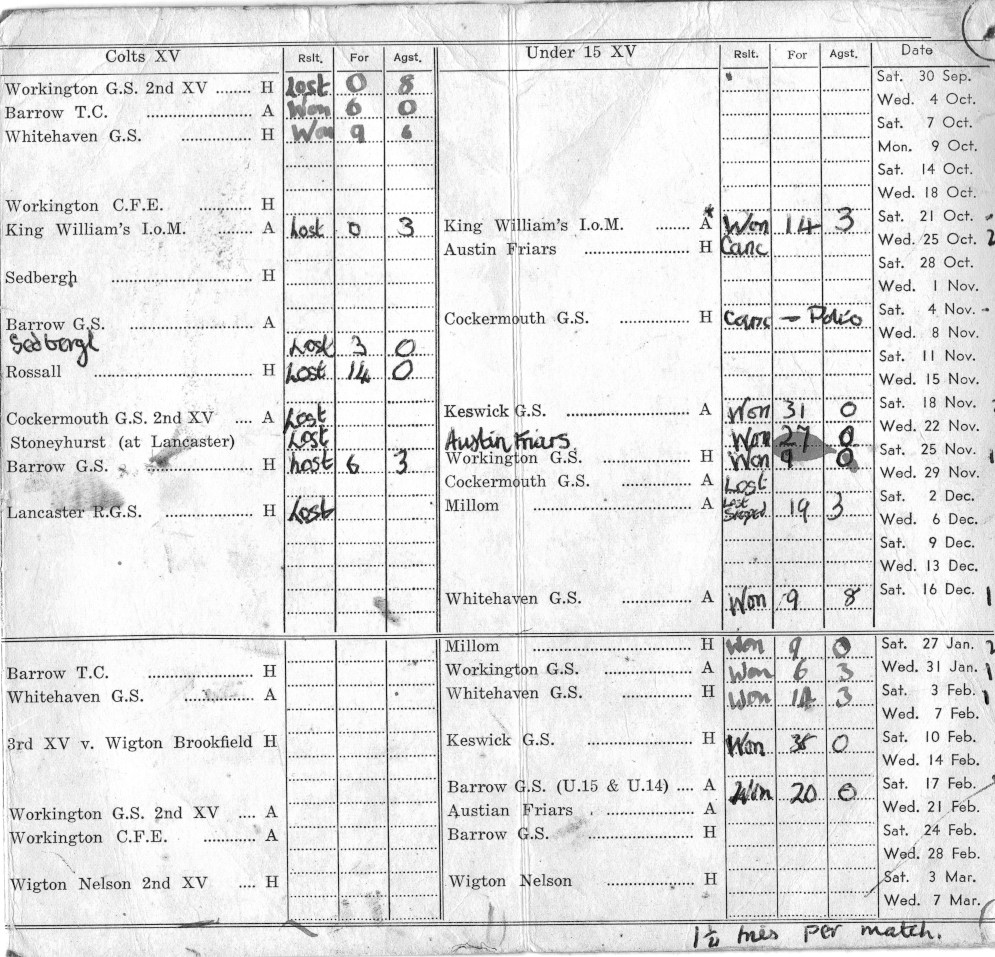 Colts XV Rslt. For Agst. Under 15 XV Rslt. For Agst. Date
Sat. 30 Sep.
Workington G.S. 2nd XV ........ H Lost 0 8
Wed. 4 Oct.
Barrow T.C. .................. A Won 6 0
Sat. 7 Oct.
Whitehaven G.S. ............... H Won 9 6
Mon. 9 Oct.
Sat. 14 Oct.
Wed. 18 Oct.
Workington C.F.E. ............ H
Sat. 21 Oct.
King William's I.o.M. ........ A Lost 0 3 King William's I.o.M. ........ A Won 14 3
Wed. 25 Oct. 2
Austin Friars .................. H Canc
Sat. 28 Oct.
Sedbergh .................. H
Wed. 1 Nov.
Sat. 4 Nov.
Barrow G.S. .................. A Cockermouth G.S. ............... H Canc - Polio
Wed. 8 Nov.
Sedbergh Lost 3 0
Sat. 11 Nov.
Rossall .................. H Lost 14 0
Wed. 15 Nov.
Sat. 18 Nov.
Cockermouth G.S. 2nd XV .... A Lost Keswick G.S. .................. A Won 31 0
Wed. 22 Nov.
Stoneyhurst (at Lancaster) Lost Austin Friars Won 27 0
Sat. 25 Nov. 1
Barrow G.S. .................. H Lost 6 3 Workington G.S. ............... H Won 9 0
Wed. 29 Nov.
Cockermouth G.S. ............... A Lost
Sat. 2 Dec.
Lancaster R.G.S. ............... H Lost Millom .................. A Lost 19 3
Wed. 6 Dec.
Sat. 9 Dec.
Wed. 13 Dec.
Sat. 16 Dec. 1
Whitehaven G.S. ............ A Won 9 8
Millom .................. H Won 9 0 Sat. 27 Jan. 2
Barrow T.C. .................. H Workington G.S. ............... A Won 6 3 Wed. 31 Jan. 1
Whitehaven G.S. ............ A Whitehaven G.S. ............... H Won 14 3 Sat. 3 Feb. 1
Wed. 7 Feb.
3rd XV v. Wigton Brookfield H Keswick G.S. .................. H Won 35 0 Sat. 10 Feb.
Wed. 14 Feb.
Barrow G.S. (U.15 & U.14) .... A Won 20 0 Sat. 17 Feb.
Workington G.S. 2nd XV .... A Austian Friars .................. A Wed. 21 Feb.
Workington C.F.E. ............ A Barrow G.S. .................. H Sat. 24 Feb.
Wed. 28 Feb.
Wigton Nelson 2nd XV .... H Wigton Nelson ............... H Sat. 3 Mar.
Wed. 7 Mar.
per match.